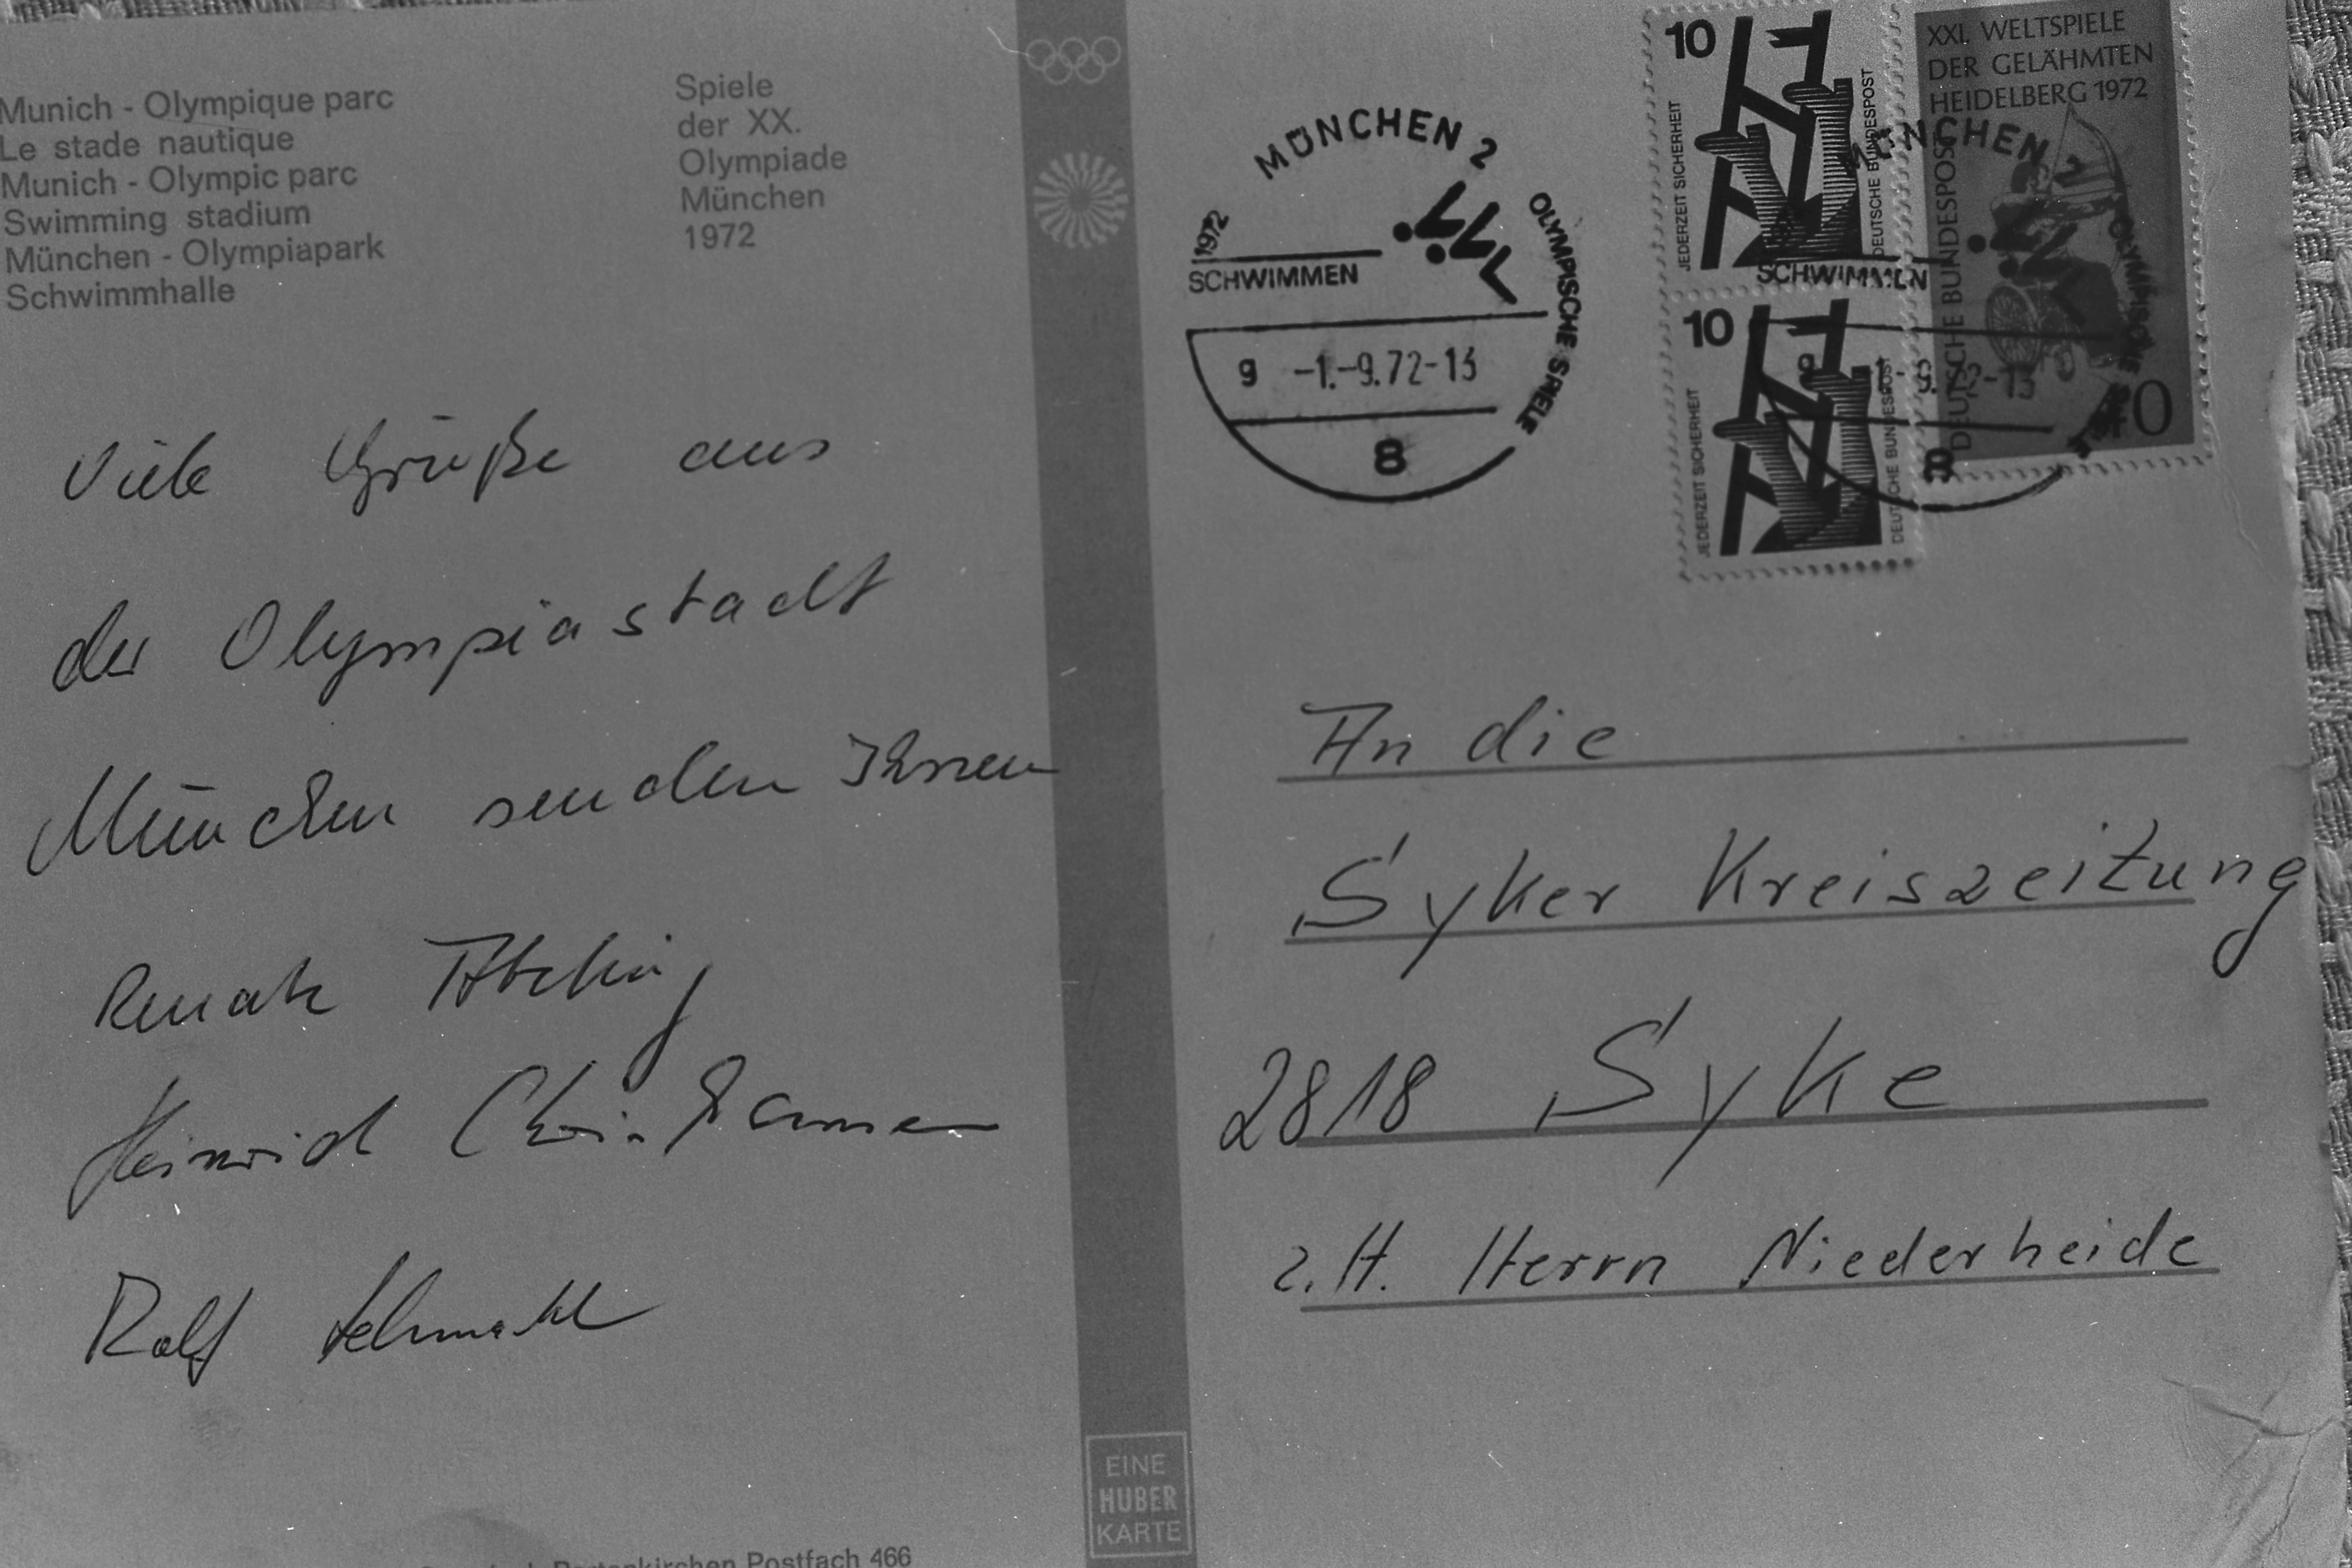 Munich - Olympique parc
Le stade nautique
Munich - Olympic parc
Swimming stadium
München - Olympiapark
Schwimmhalle
Spiele
der XX.
Olympiade
München
1972
Viele Grüße aus
der Olympiastadt
München senden Ihnen
Renate
Heinrich
Rolf
EINE
HUBER
KARTE
Partenkirchen Postfach 466
MÜNCHEN 2
1972
SCHWIMMEN
OLYMPISCHE SPIELE
g -1.-9.72-13
8
10
JEDERZEIT SICHERHEIT
DEUTSCHE BUNDESPOST
10
JEDERZEIT SICHERHEIT
DEUTSCHE BUNDESPOST
XXI. WELTSPIELE
DER GELÄHMTEN
HEIDELBERG 1972
DEUTSCHE BUNDESPOST
40
MÜNCHEN 2
SCHWIMMEN
OLYMPISCHE SPIELE
g -1.-9.72-13
8
An die
Syker Kreiszeitung
2818 Syke
z.H. Herrn Niederheide